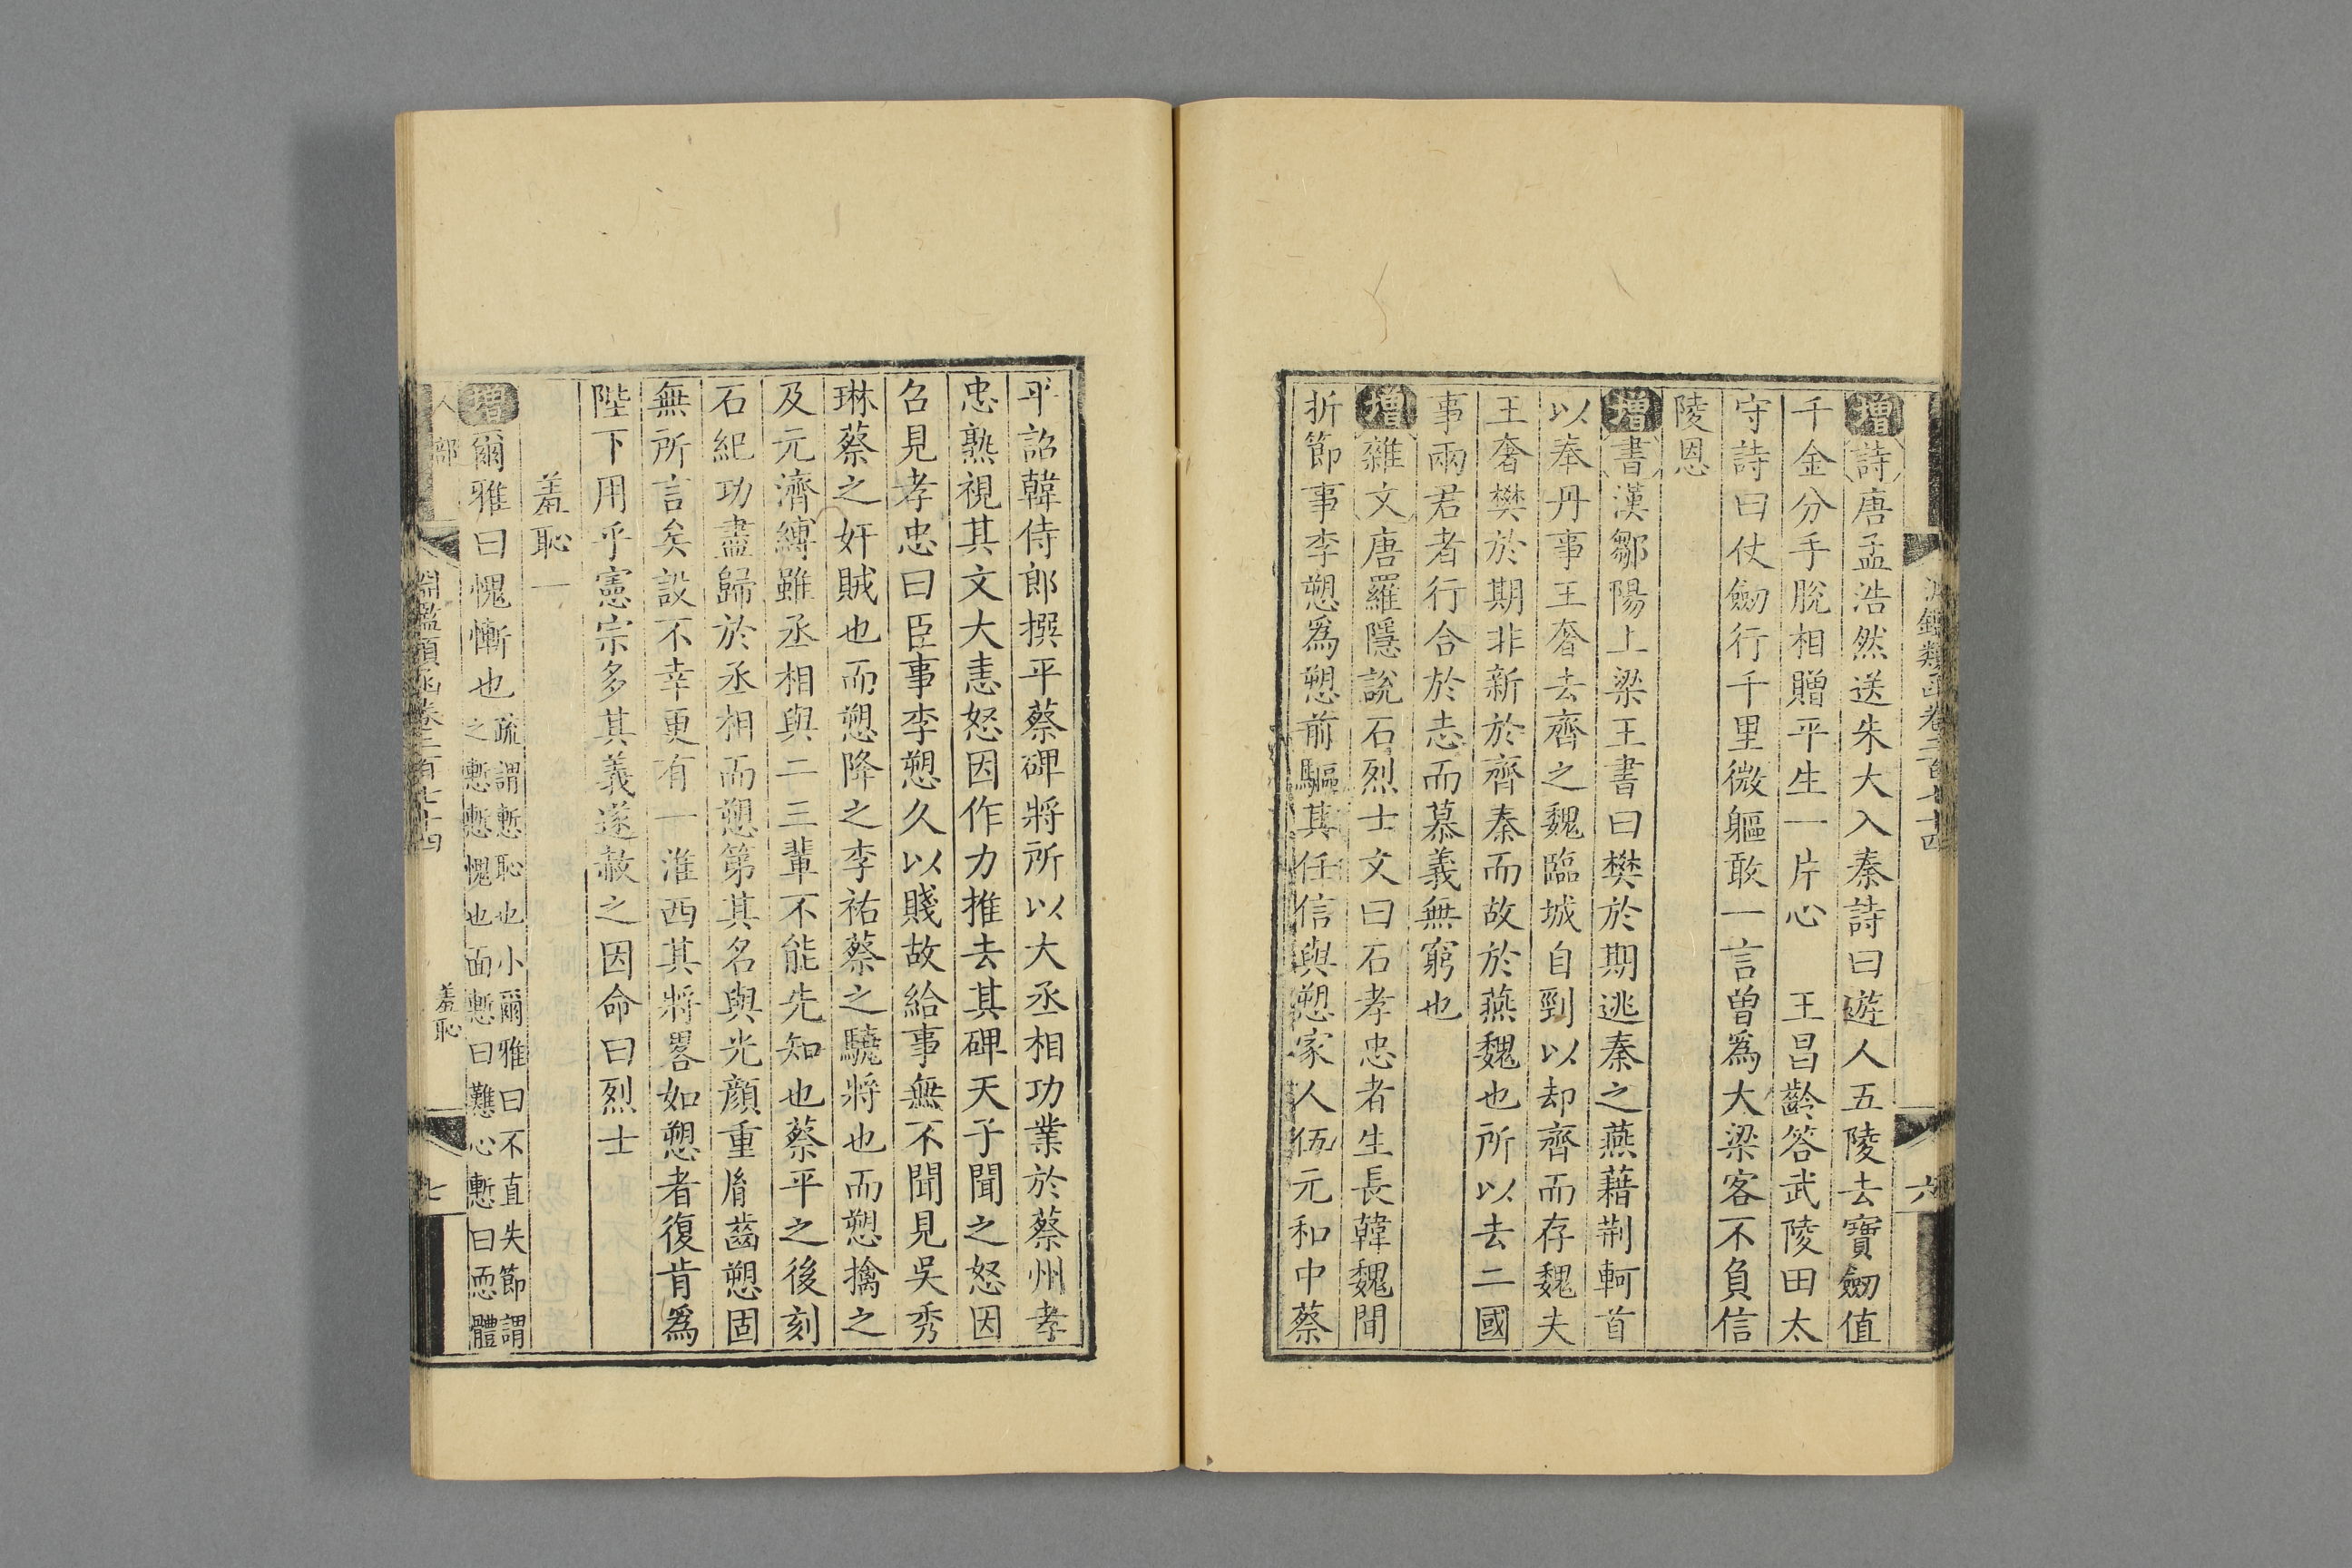 淵鑑類函卷三百七十四 六
增詩唐孟浩然送朱大入秦詩曰遊人五陵去寶劒值
千金分手脫相贈平生一片心 王昌齡答武陵田太
守詩曰仗劒行千里微軀敢一言曾爲大梁客不負信
陵恩
增書漢鄒陽上梁王書曰樊於期逃秦之燕藉荆軻首
以奉丹事王奢去齊之魏臨城自剄以却齊而存魏夫
王奢樊於期非新於齊秦而故於燕魏也所以去二國
事兩君者行合於志而慕義無窮也
增雜文唐羅隱說石烈士文曰石孝忠者生長韓魏間
折節事李愬爲愬前驅其任信與愬家人伍元和中蔡
平詔韓侍郎撰平蔡碑將所以大丞相功業於蔡州孝
忠熟視其文大恚怒因作力推去其碑天子聞之怒因
召見孝忠曰臣事李愬久以賤故給事無不聞見吳秀
琳蔡之奸賊也而愬降之李祐蔡之驍將也而愬擒之
及元濟縛雖丞相與二三輩不能先知也蔡平之後刻
石紀功盡歸於丞相而愬第其名與光顏重胤齒愬固
無所言矣設不幸更有一淮西其將畧如愬者復肯爲
陛下用乎憲宗多其義遂赦之因命曰烈士
羞恥一
增爾雅曰愧慚也疏謂慙恥也小爾雅曰不直失節謂
之慙慙愧也面慙曰戁心慙曰恧體
人部 淵鑑類函卷三百七十四 羞恥 七